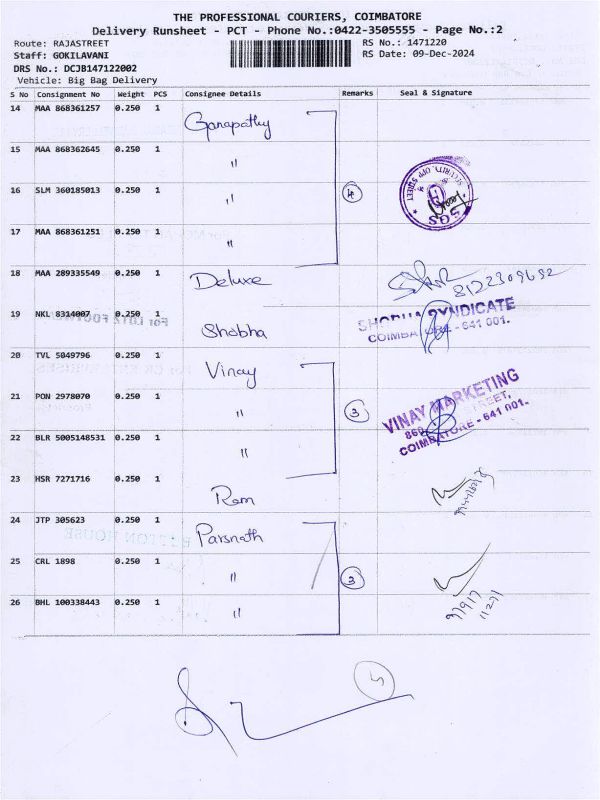 THE PROFESSIONAL COURIERS, COIMBATORE
Delivery Runsheet - PCT - Phone No.:0422-3505555 - Page No.:2
Route: RAJASTREET
RS No.: 1471220
Staff: GOKILAVANI
RS Date: 09-Dec-2024
DRS No.: DCJB147122002
Vehicle: Big Bag Delivery
S No Consignment No Weight PCS Consignee Details Remarks Seal & Signature
14 MAA 868361257 0.250 1 Ganapathy
15 MAA 868362645 0.250 1 "
16 SLM 360185013 0.250 1 " 4
17 MAA 868361251 0.250 1 "
SGS
18 MAA 289335549 0.250 1 Deluxe
19 NKL 8314007 0.250 1 Shobha
SHOBHA SYNDICATE
COIMBATORE - 641 001.
20 TVL 5049796 0.250 1 Vinay
21 PON 2978070 0.250 1 " 3
VINAY MARKETING
STREET,
COIMBATORE - 641 001.
22 BLR 5005148531 0.250 1 "
23 HSR 7271716 0.250 1 Ram
24 JTP 305623 0.250 1 Parsnath
25 CRL 1898 0.250 1 " 3
26 BHL 100338443 0.250 1 "
97917
11271